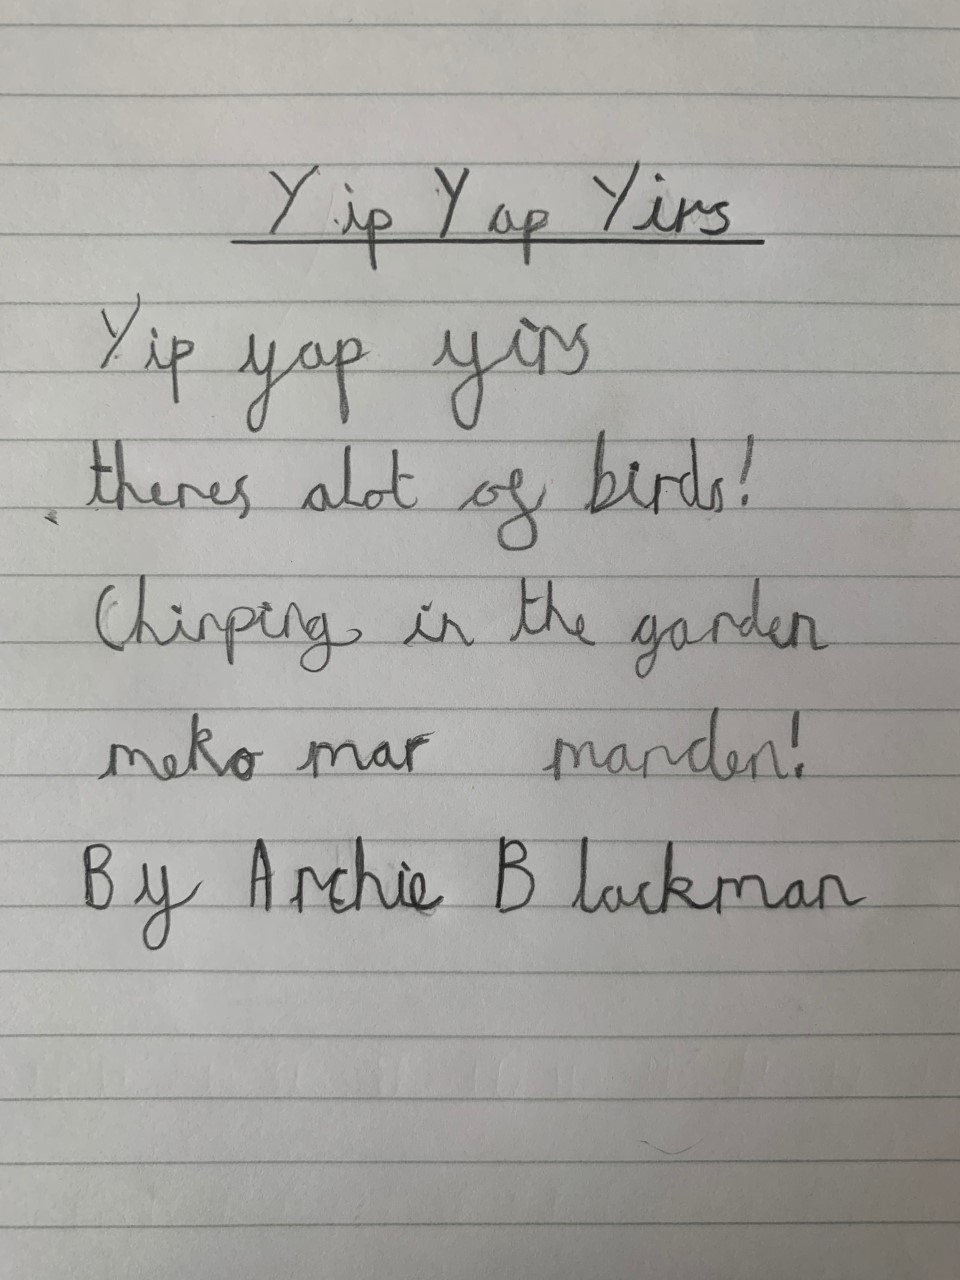 Yip Yap Yirs
Yip yap yirs
theres alot of birds!
Chirping in the garden
meko mar manden!
By Archie Blackman